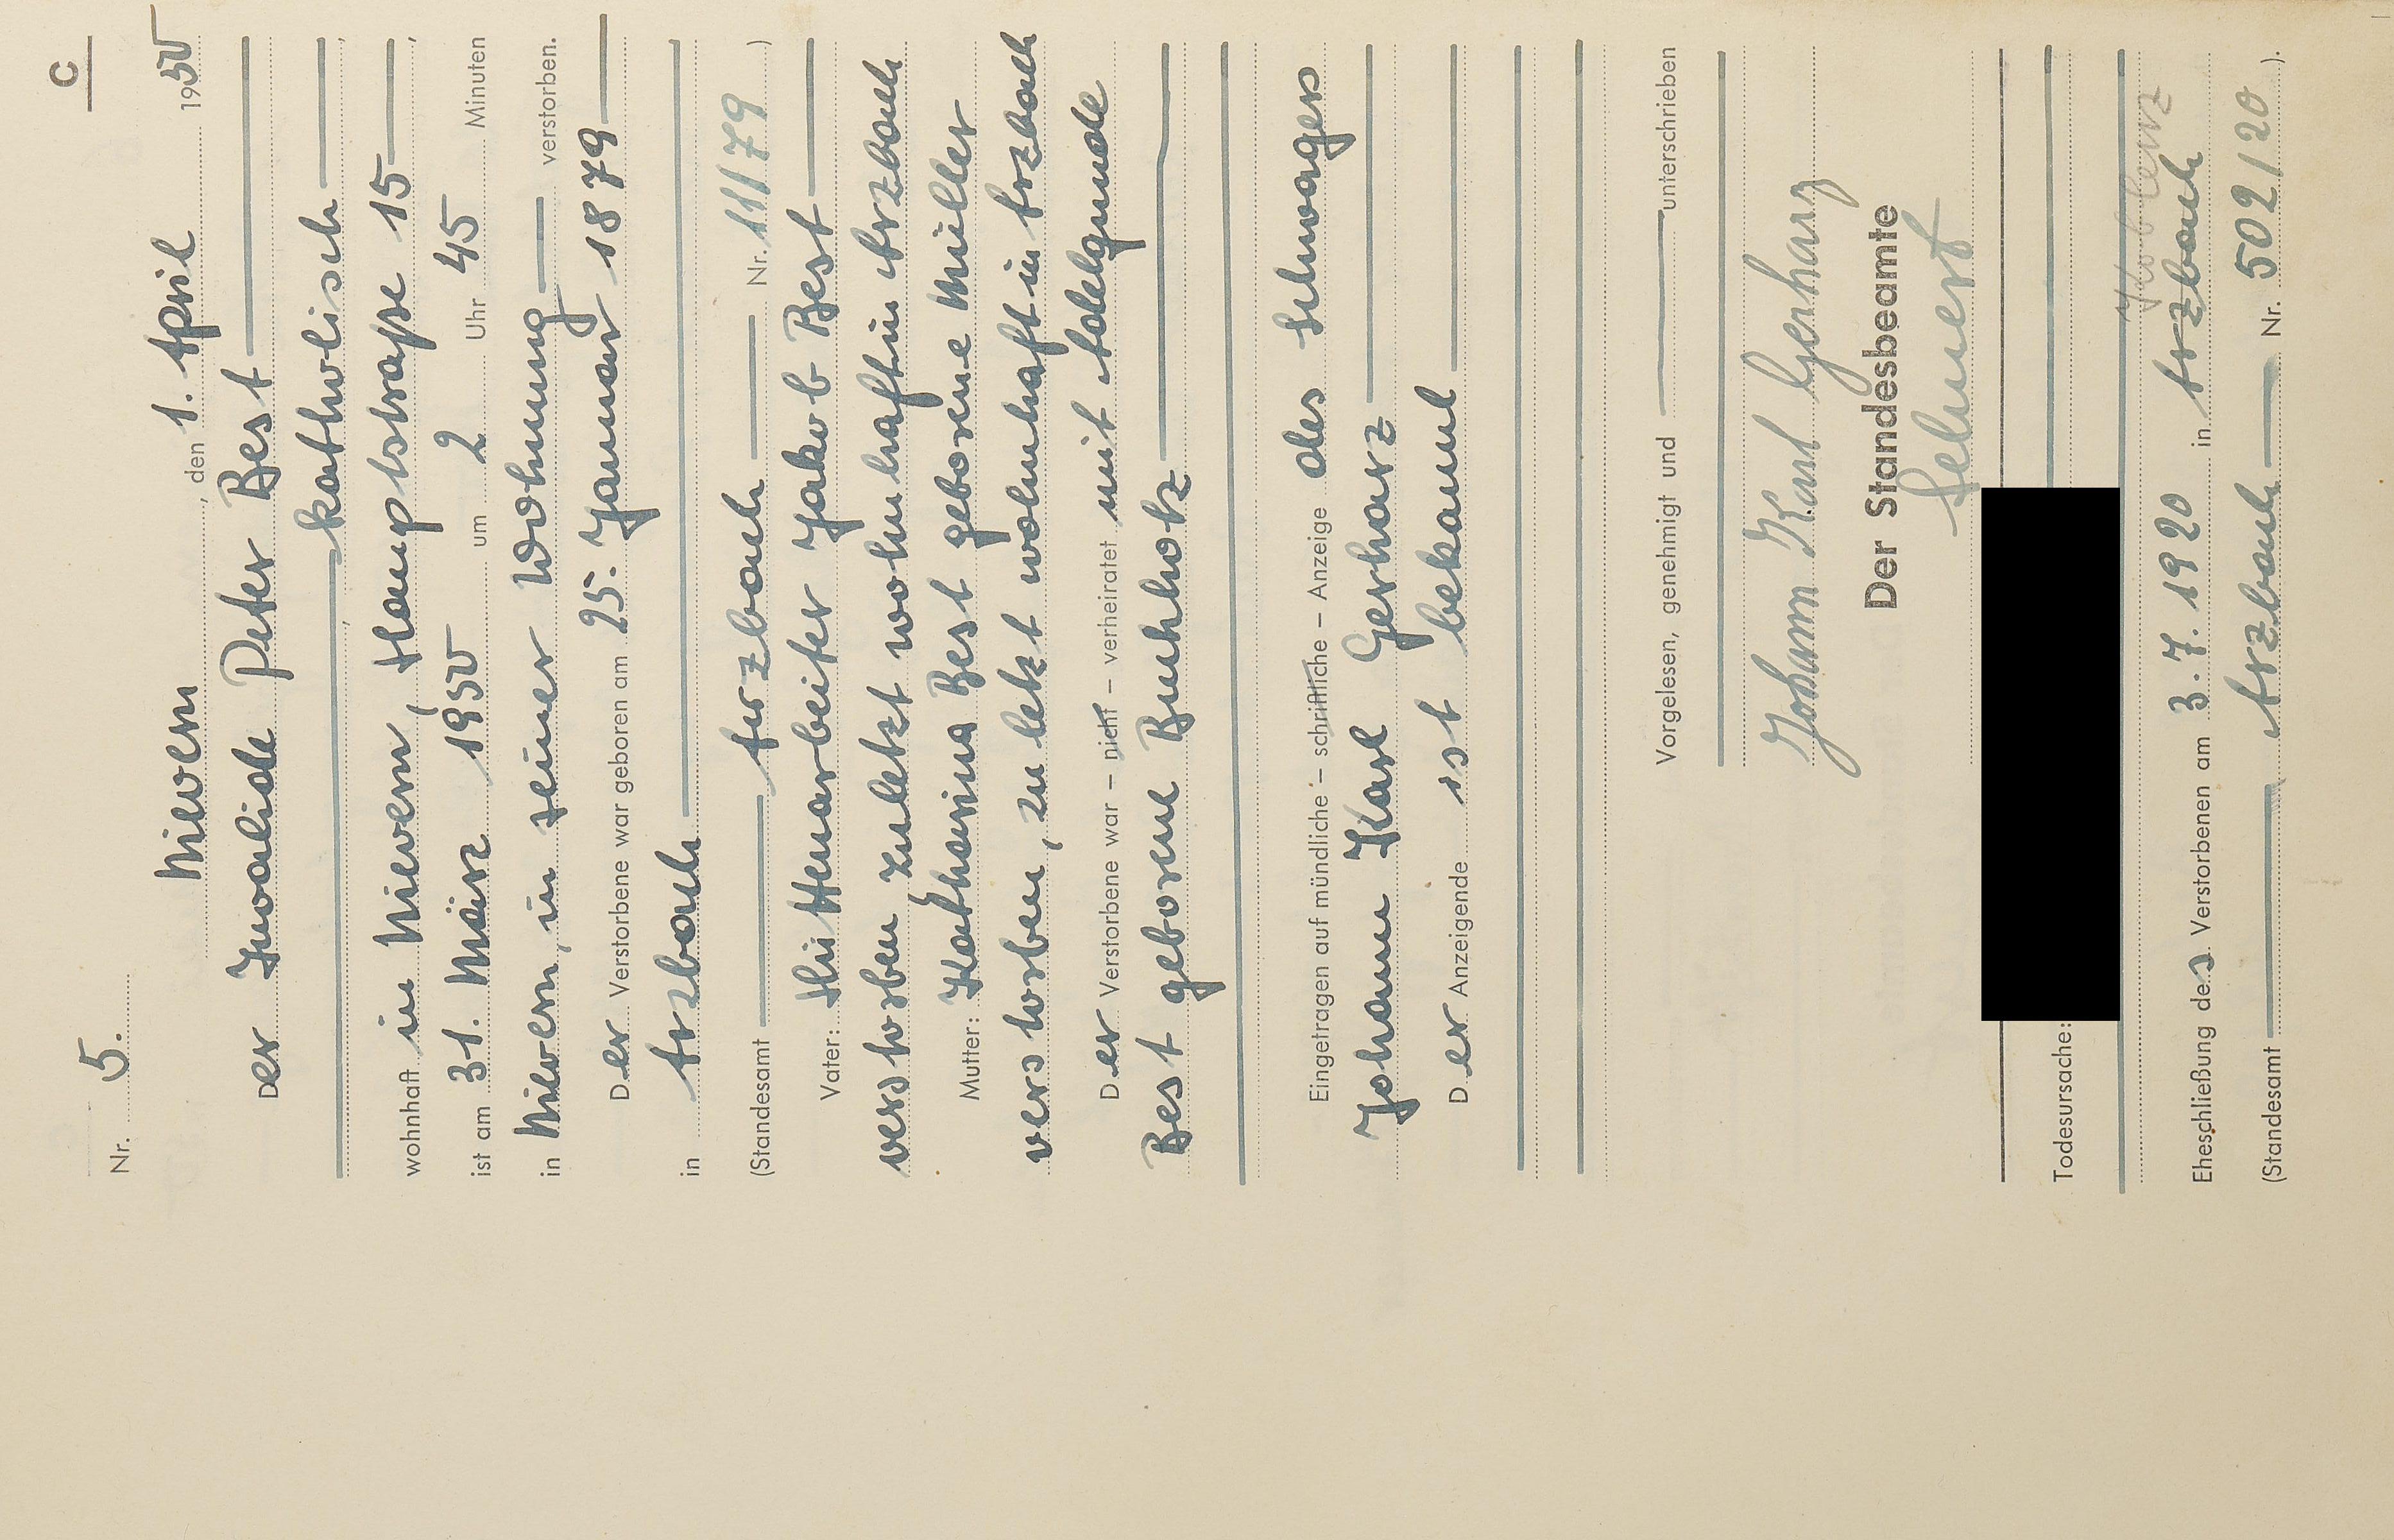 C
Nr. 5.
Nievern, den 1. April 1950
Der Invalide Peter Best
katholisch,
wohnhaft in Nievern, Hauptstraße 15,
ist am 31. März 1950 um 2 Uhr 45 Minuten
in Nievern, in seiner Wohnung verstorben.
Der Verstorbene war geboren am 25. Januar 1879
in Arzbach
(Standesamt Arzbach Nr. 11/79)
Vater: Hüttenarbeiter Jakob Best
verstorben zuletzt wohnhaft in Arzbach
Mutter: Katharina Best geborene Müller
verstorben, zuletzt wohnhaft in Arzbach
Der Verstorbene war – nicht – verheiratet mit Adelgunde
Best geborene Buchholz
Eingetragen auf mündliche – schriftliche – Anzeige des Schwagers
Johann Karl Gerharz
Der Anzeigende ist bekannt
Vorgelesen, genehmigt und unterschrieben
Johann Karl Gerharz
Der Standesbeamte
Todesursache:
Koblenz
Eheschließung des Verstorbenen am 3.7.1920 in Arzbach
(Standesamt Arzbach Nr. 502/20).